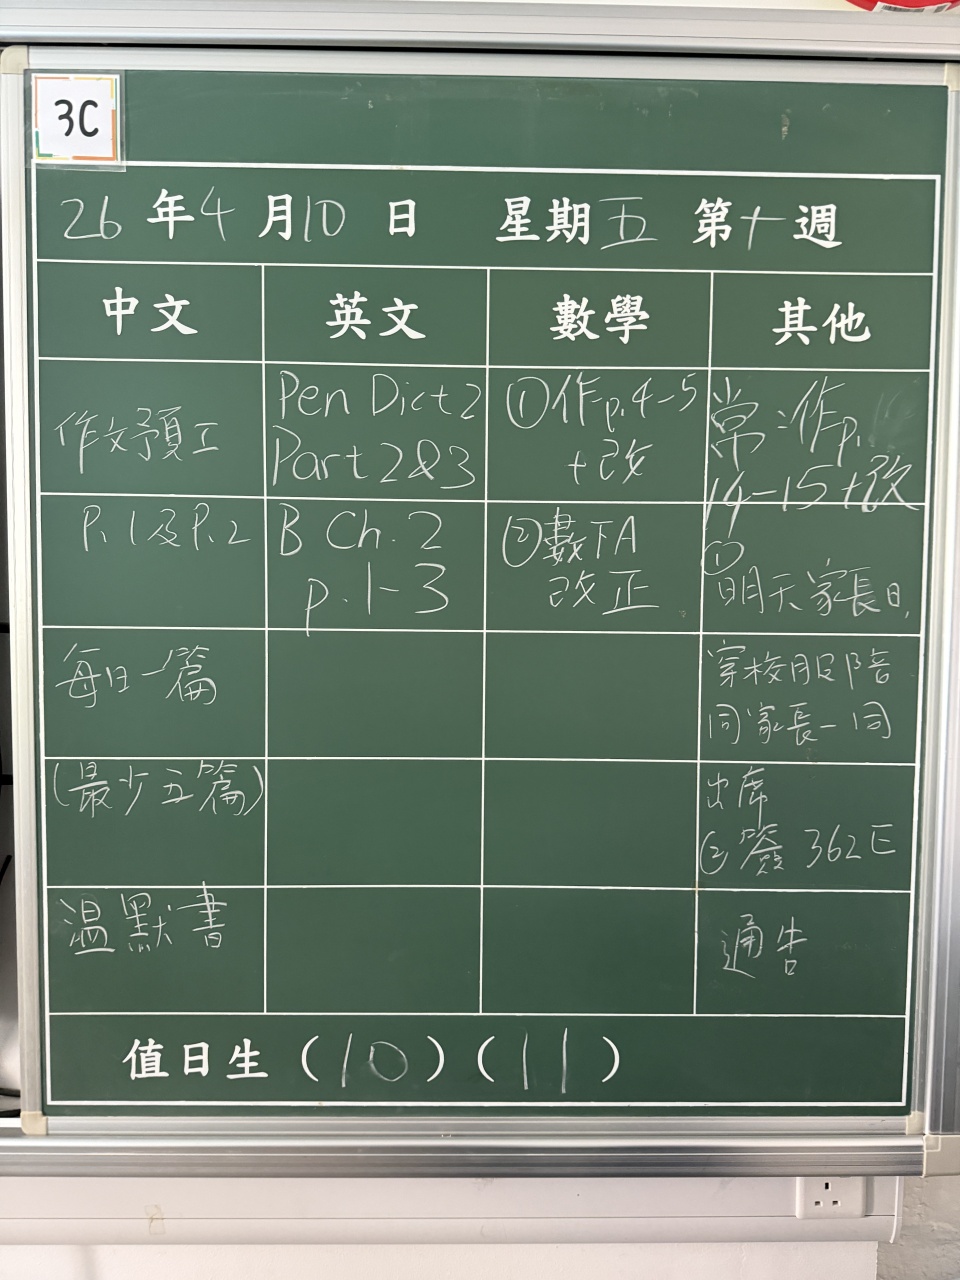 3C
26年4月10日 星期五 第十週
中文
英文
數學
其他
作文預工
P.1及P.2
每日一篇
(最少五篇)
溫默書
Pen Dict 2
Part 2&3
B Ch. 2
p.1-3
①作p.4-5
+改
②數下A
改正
常:作p.
14-15+改
①
明天家長日,
穿校服陪
同家長一同
出席
②簽 362E
通告
值日生(10)(11)